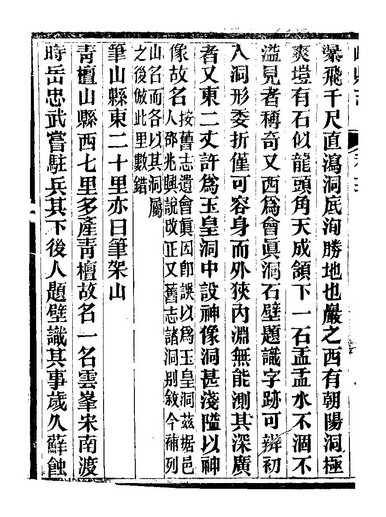 瀑飛千尺直瀉洞底洵勝地也巖之西有朝陽洞極
爽塏有石似龍頭角天成頷下一石盂盂水不涸不
溢見者稱奇又西爲會眞洞石壁題識字跡可辨初
入洞形委折僅可容身而外狹內淵無能測其深廣
者又東二丈許爲玉皇洞中設神像洞甚淺隘以神
像故名按舊志遺會眞因卽誤以爲玉皇洞茲据邑
人邵兆興説改正又舊志諸洞別敘今補列
山名而各以其洞屬
之後倣此里數錯
筆山縣東二十里亦曰筆架山
青檀山縣西七里多產青檀故名一名雲峯宋南渡
時岳忠武嘗駐兵其下後人題壁識其事歲久蘚蝕